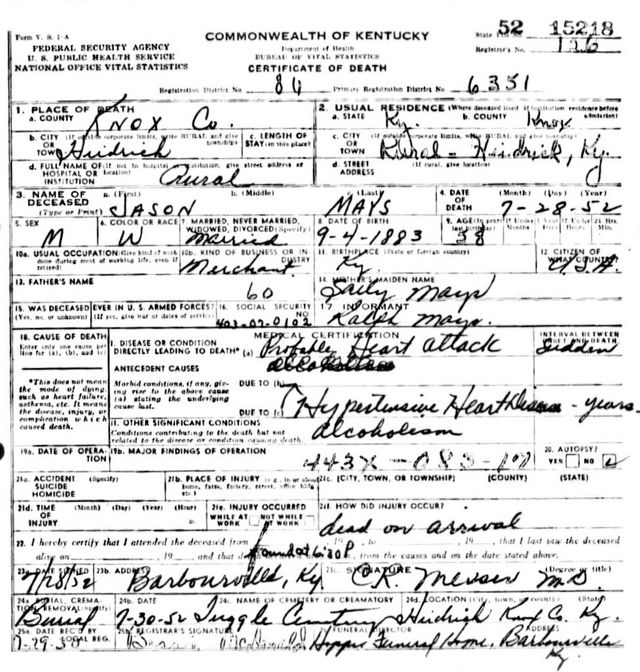 Form V. S. 1-A
COMMONWEALTH OF KENTUCKY
State File No. 52 15218
FEDERAL SECURITY AGENCY
Department of Health
Registrar's No. 126
U. S. PUBLIC HEALTH SERVICE
BUREAU OF VITAL STATISTICS
NATIONAL OFFICE VITAL STATISTICS
CERTIFICATE OF DEATH
Registration District No. 84 Primary Registration District No. 6351
1. PLACE OF DEATH
a. COUNTY Knox Co.
2. USUAL RESIDENCE (Where deceased lived. If institution: residence before admission)
a. STATE Ky. b. COUNTY Knox
b. CITY (If outside corporate limits, write RURAL and give township) OR TOWN
c. LENGTH OF STAY (in this place)
c. CITY (If outside corporate limits, write RURAL and give township) OR TOWN Rural - Ky.
d. FULL NAME OF (If not in hospital or institution, give street address or location) HOSPITAL OR INSTITUTION Rural
d. STREET ADDRESS (If rural, give location)
3. NAME OF DECEASED (Type or Print)
a. (First) JASON
b. (Middle)
c. (Last) MAYS
4. DATE OF DEATH (Month) (Day) (Year) 7-28-52
5. SEX M
6. COLOR OR RACE W
7. MARRIED, NEVER MARRIED, WIDOWED, DIVORCED (Specify) Married
8. DATE OF BIRTH 9-4-1883
9. AGE (In years
10a. USUAL OCCUPATION (Give kind of work done during most of working life, even if retired)
10b. KIND OF BUSINESS OR INDUSTRY Merchant
11. BIRTHPLACE (State or foreign country) Ky.
12. CITIZEN OF WHAT COUNTRY? U.S.A.
13. FATHER'S NAME
14. MOTHER'S MAIDEN NAME
60 Mays
15. WAS DECEASED EVER IN U. S. ARMED FORCES?
(Yes, no, or unknown) (If yes, give war or dates of service)
16. SOCIAL SECURITY NO. 403-07-0102
17. INFORMANT Ralph Mays.
18. CAUSE OF DEATH
Enter only one cause per line for (a), (b), and (c)
MEDICAL CERTIFICATION
INTERVAL BETWEEN ONSET AND DEATH
I. DISEASE OR CONDITION DIRECTLY LEADING TO DEATH* (a) Probable Heart attack Sudden
*This does not mean the mode of dying, such as heart failure, asthenia, etc. It means the disease, injury, or complication which caused death.
ANTECEDENT CAUSES
Morbid conditions, if any, giving rise to the above cause (a) stating the underlying cause last.
DUE TO (b)
DUE TO (c) Hypertensive Heart Disease - years
II. OTHER SIGNIFICANT CONDITIONS
Conditions contributing to the death but not related to the disease or condition causing death.
alcoholism
19a. DATE OF OPERATION
19b. MAJOR FINDINGS OF OPERATION
443X - 083-
20. AUTOPSY?
YES NO
21a. ACCIDENT SUICIDE HOMICIDE
21b. PLACE OF INJURY (e.g., in or about home, farm, factory, street, office bldg., etc.)
21c. (CITY, TOWN, OR TOWNSHIP) (COUNTY) (STATE)
21d. TIME OF INJURY (Month) (Day) (Year) (Hour)
21e. INJURY OCCURRED
WHILE AT WORK NOT WHILE AT WORK
21f. HOW DID INJURY OCCUR?
dead on arrival
22. I hereby certify that I attended the deceased from , 19 , to , 19 , that I last saw the deceased
alive on , 19 , and that death found at 6:30 P. from the causes and on the date stated above.
23a. DATE SIGNED 7/28/52
23b. ADDRESS Barbourville, Ky
23c. SIGNATURE C.R. Messer M.D. (Degree or title)
24a. BURIAL, CREMATION, REMOVAL (Specify) Burial
24b. DATE 7-30-52
24c. NAME OF CEMETERY OR CREMATORY Tuggle Cemetery
24d. LOCATION (City, town, or county) (State) Knox Co. Ky.
25a. DATE REC'D BY LOCAL REG. 7-29-52
25b. REGISTRAR'S SIGNATURE
FUNERAL DIRECTOR ADDRESS
Funeral Home, Barbourville Ky.